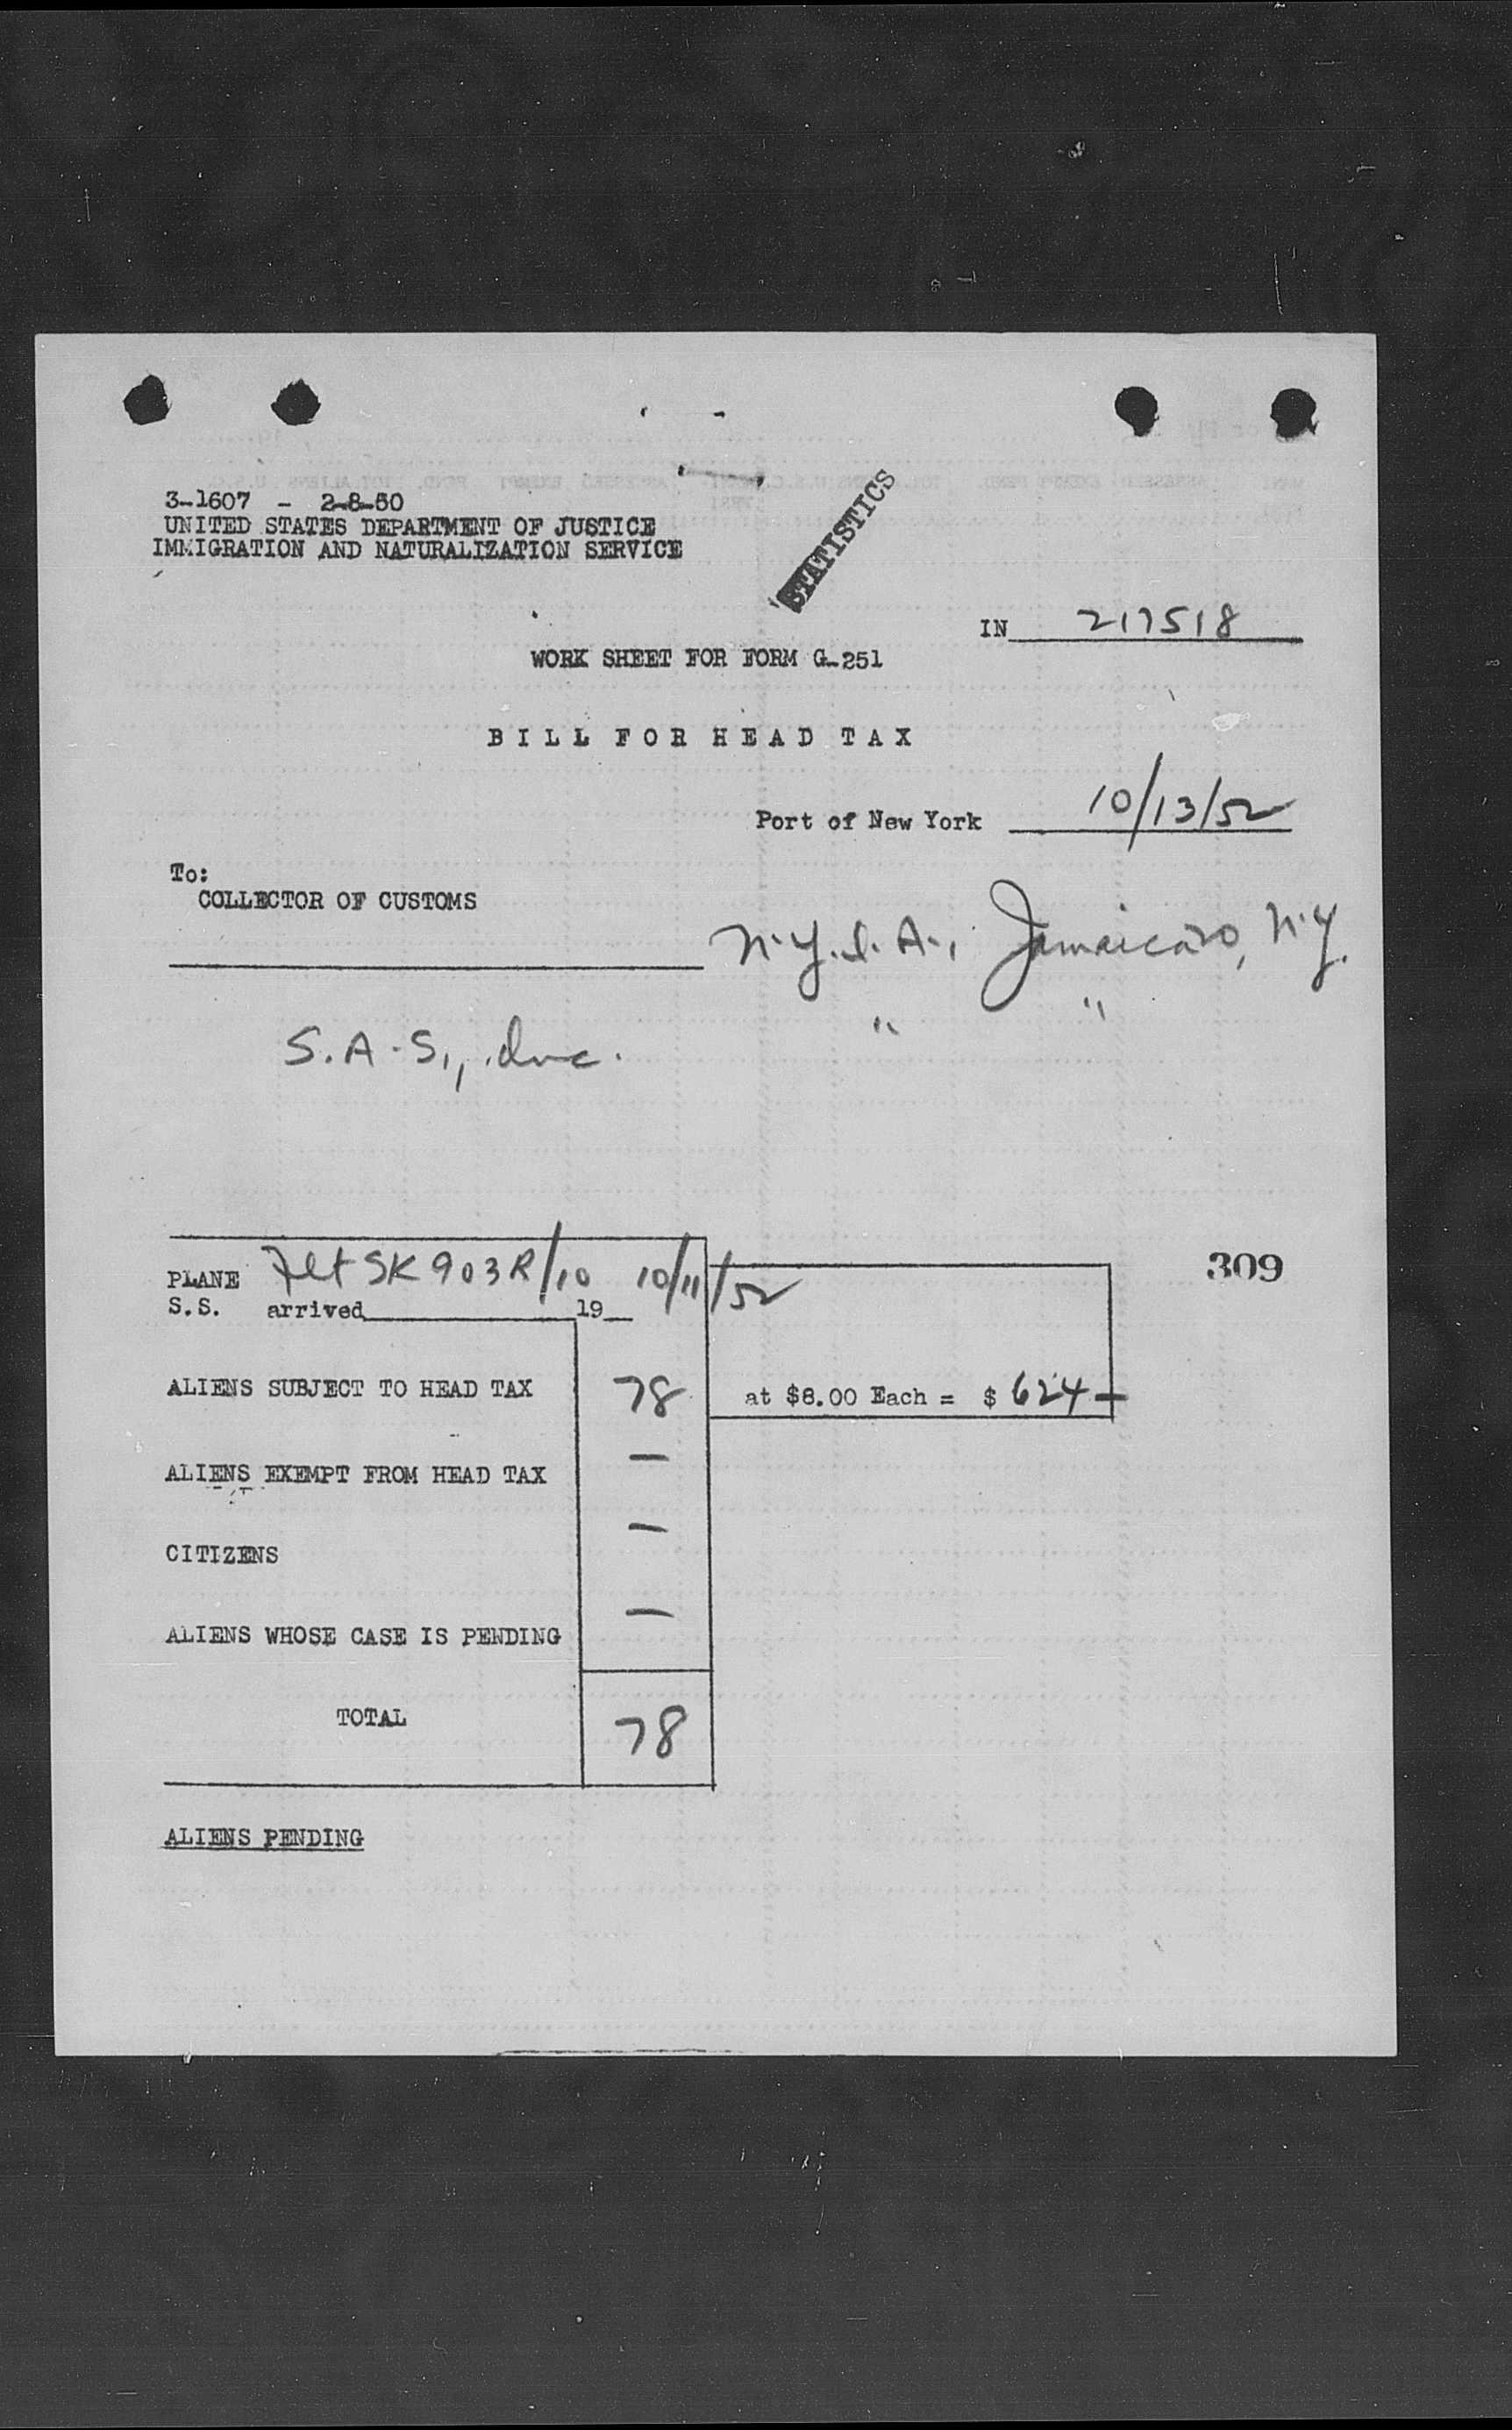 3-1607 - 2-8-50
UNITED STATES DEPARTMENT OF JUSTICE
IMMIGRATION AND NATURALIZATION SERVICE
STATISTICS
IN 217518
WORK SHEET FOR FORM G-251
BILL FOR HEAD TAX
Port of New York 10/13/52
To:
COLLECTOR OF CUSTOMS
N.Y.I.A., Jamaica 30, N.Y.
S.A.S., Inc. " "
309
PLANE Flt SK 903R/10 10/11/52
S.S. arrived 19
ALIENS SUBJECT TO HEAD TAX 78 at $8.00 Each = $ 624 -
ALIENS EXEMPT FROM HEAD TAX -
CITIZENS -
ALIENS WHOSE CASE IS PENDING -
TOTAL 78
ALIENS PENDING